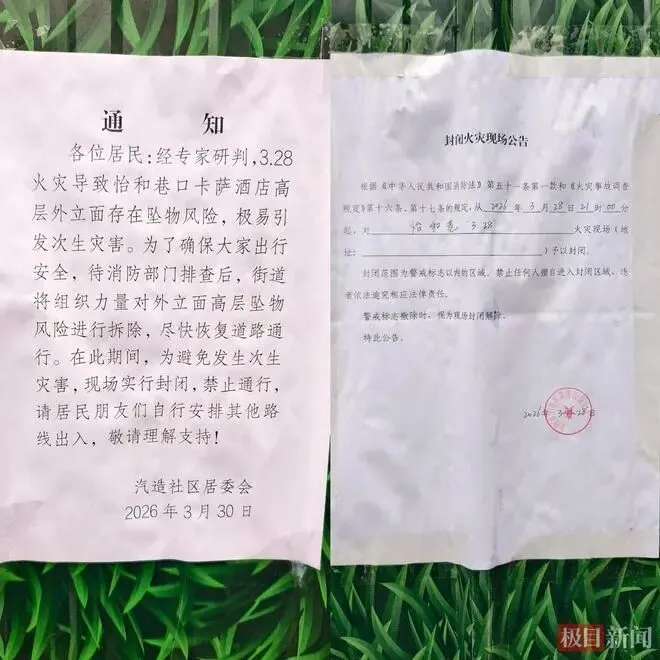 通 知
各位居民：经专家研判，3.28
火灾导致怡和巷口卡萨酒店高
层外立面存在坠物风险，极易引
发次生灾害。为了确保大家出行
安全，待消防部门排查后，街道
将组织力量对外立面高层坠物
风险进行拆除，尽快恢复道路通
行。在此期间，为避免发生次生
灾害，现场实行封闭，禁止通行，
请居民朋友们自行安排其他路
线出入，敬请理解支持！
汽造社区居委会
2026年3月30日
封闭火灾现场公告
根据《中华人民共和国消防法》第五十一条第一款和《火灾事故调查
规定》第十六条、第十七条的规定，从2026年3月28日21时00分
起，对 怡和巷 3.28 火灾现场（地
址： ）予以封闭。
封闭范围为警戒标志以内的区域。禁止任何人擅自进入封闭区域，违
者依法追究相应法律责任。
警戒标志撤除时，视为现场封闭解除。
特此公告。
2026年3月28日
极目新闻